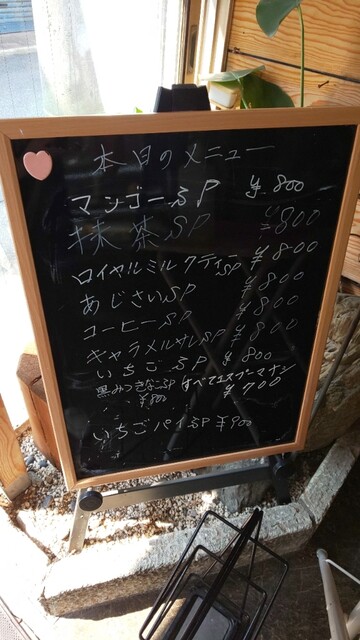 本日のメニュー
マンゴーSP ¥800
抹茶SP ¥800
ロイヤルミルクティーSP ¥800
あじさいSP ¥800
コーヒーSP ¥800
キャラメルサレSP ¥800
いちごSP ¥800
黒みつきなこSP すべてエスプーマナシ
¥800 ¥700
いちごパイSP ¥900